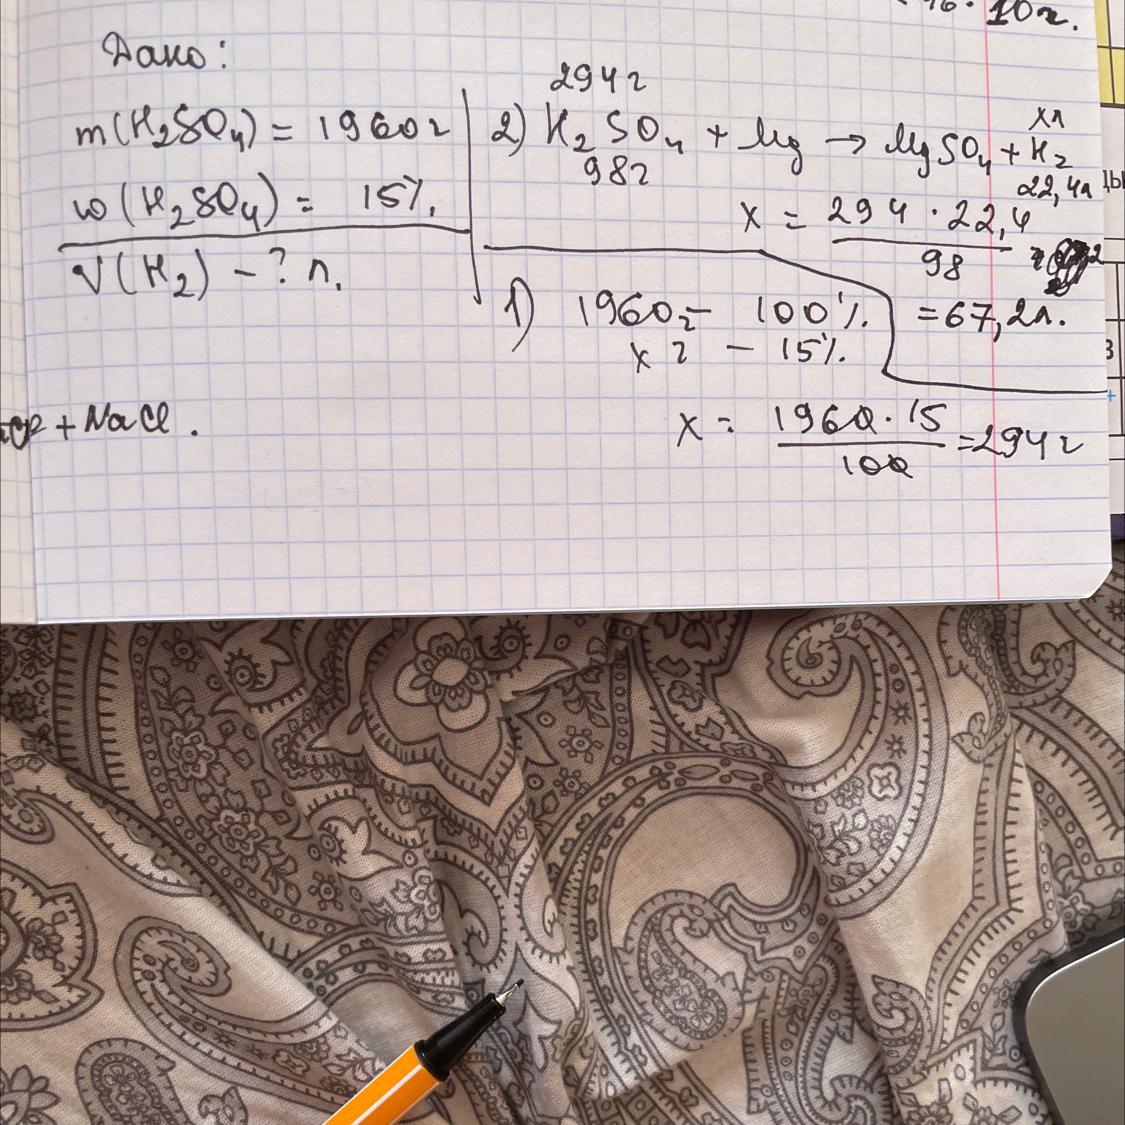 · 10 г.
Дано:
m(H₂SO₄) = 1960 г
ω(H₂SO₄) = 15%.
V(H₂) - ? л.
294 г
xл
2) H₂SO₄ + Mg → MgSO₄ + H₂
98 г
22,4л
x = 294 · 22,4
98
= 67,2 л.
1) 1960 г - 100%.
x г - 15%.
x = 1960 · 15
100
= 294 г
+ NaCl.
ды
3